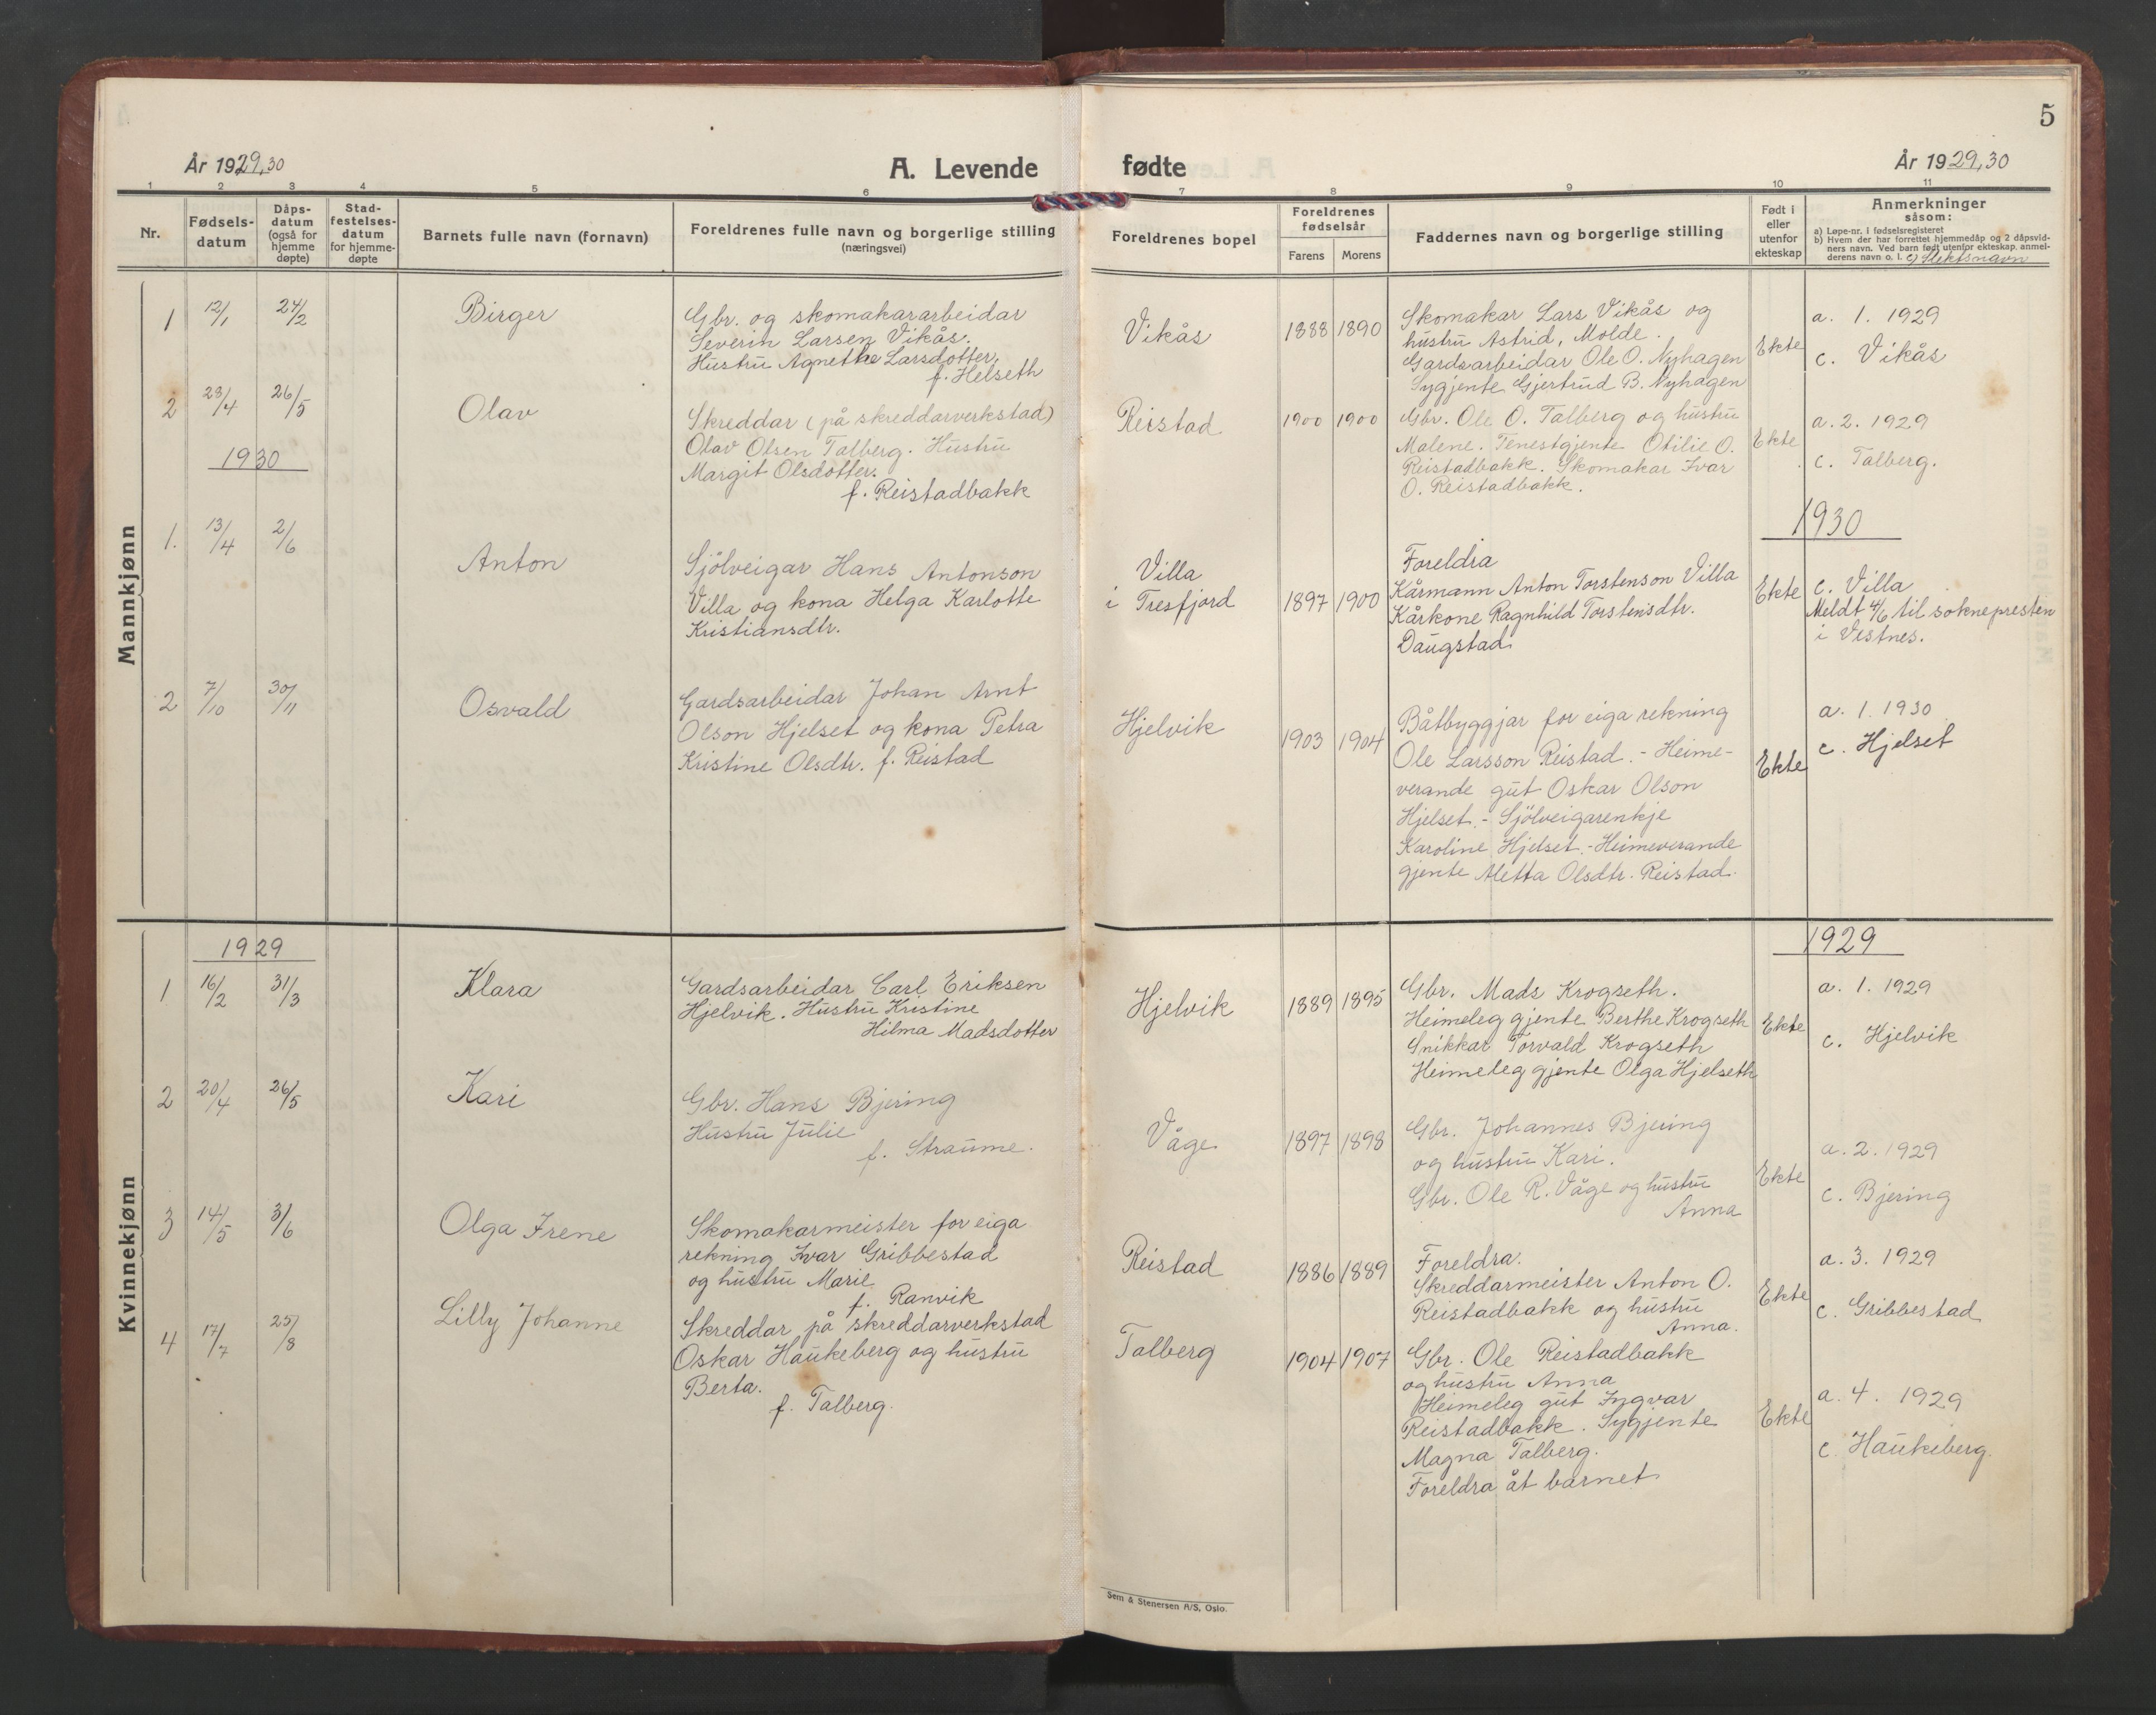 5
År 1929,30
A. Levende fødte
År 1929,30
1 2 3 4 5 6 7 8 9 10 11
Nr.
Fødsels-
datum
Dåps-
datum
(også for
hjemme
døpte)
Stad-
festelses-
datum
for hjemme-
døpte
Barnets fulle navn (fornavn)
Foreldrenes fulle navn og borgerlige stilling
(næringsvei)
Foreldrenes bopel
Foreldrenes
fødselsår
Farens Morens
Faddernes navn og borgerlige stilling
Født i
eller
utenfor
ekteskap
Anmerkninger
såsom:
a) Løpe-nr. i fødselsregisteret
b) Hvem der har forrettet hjemmedåp og 2 dåpsvid-
ners navn. Ved barn født utenfor ekteskap anmel-
derens navn o. l. c) Slektsnavn
Mannkjønn
1 12/1 24/2 Birger
Gbr. og skomakararbeidar
Severin Larsen Vikås.
Hustru Agnethe Larsdotter,
f. Helseth
Vikås
1888 1890
Skomakar Lars Vikås og
hustru Astrid, Molde.
Gardsarbeidar Ole O. Nyhagen
Sygjente Gjertrud B. Nyhagen
Ekte
a. 1. 1929
c. Vikås
2 23/4 26/5 Olav
Skreddar (på skreddarverkstad)
Olav Olsen Talberg. Hustru
Margit Olsdotter.
f. Reistadbakk
Reistad
1900 1900
Gbr. Ole O. Talberg og hustru
Malene. Tenestgjente Otilie O.
Reistadbakk. Skomakar Ivar
O. Reistadbakk.
Ekte
a. 2. 1929
c. Talberg.
1930
1930
1. 13/4 2/6 Anton
Sjölveigar Hans Antonson
Villa og kona Helga Karlotte
Kristiansdtr.
Villa
i Tresfjord
1897 1900
Foreldra
Kårmann Anton Torstenson Villa
Kårkone Ragnhild Torstensdtr.
Daugstad
Ekte
c. Villa
Meldt 4/6 til soknepresten
i Vestnes.
2 7/10 30/11 Osvald
Gardsarbeidar Johan Arnt
Olson Hjelset og kona Petra
Kristine Olsdtr. f. Reistad
Hjelvik
1903 1904
Båtbyggjar for eiga rekning
Ole Larsson Reistad. - Heime-
verande gut Oskar Olson
Hjelset. - Sjölveigarenkje
Karoline Hjelset. - Heimeverande
gjente Metta Olsdtr. Reistad.
Ekte
a. 1. 1930
c. Hjelset
Kvinnekjønn
1929
1929
1 16/2 31/3 Klara
Gardsarbeidar Carl Eriksen
Hjelvik. Hustru Kristine
Hilma Madsdotter
Hjelvik
1889 1895
Gbr. Mads Krogseth.
Heimeleg gjente Berthe Krogseth
Snikkar Torvald Krogseth
Heimeleg gjente Olga Hjelseth
Ekte
a. 1. 1929
c. Hjelvik
2 20/4 26/5 Kari
Gbr. Hans Bjering
Hustru Julie
f. Straume.
Våge
1897 1898
Gbr. Johannes Bjering
og hustru Kari.
Gbr. Ole R. Våge og hustru
Anna
Ekte
a. 2. 1929
c. Bjering
3 14/5 3/6 Olga Irene
Skomakarmeister for eiga
rekning Ivar Gribbestad
og hustru Marie
f. Ranvik
Reistad
1886 1889
Foreldra.
Skreddarmeister Anton O.
Reistadbakk og hustru
Anna.
Ekte
a. 3. 1929
c. Gribbestad
4 17/7 25/8 Lilly Johanne
Skreddar på skreddarverkstad
Oskar Haukeberg og hustru
Berta.
f. Talberg.
Talberg
1904 1907
Gbr. Ole Reistadbakk
og hustru Anna
Heimeleg gut Ingvar
Reistadbakk. Sygjente
Magna Talberg.
Foreldra åt barnet
Ekte
a. 4. 1929
c. Haukeberg.
Sem & Stenersen A/S, Oslo.